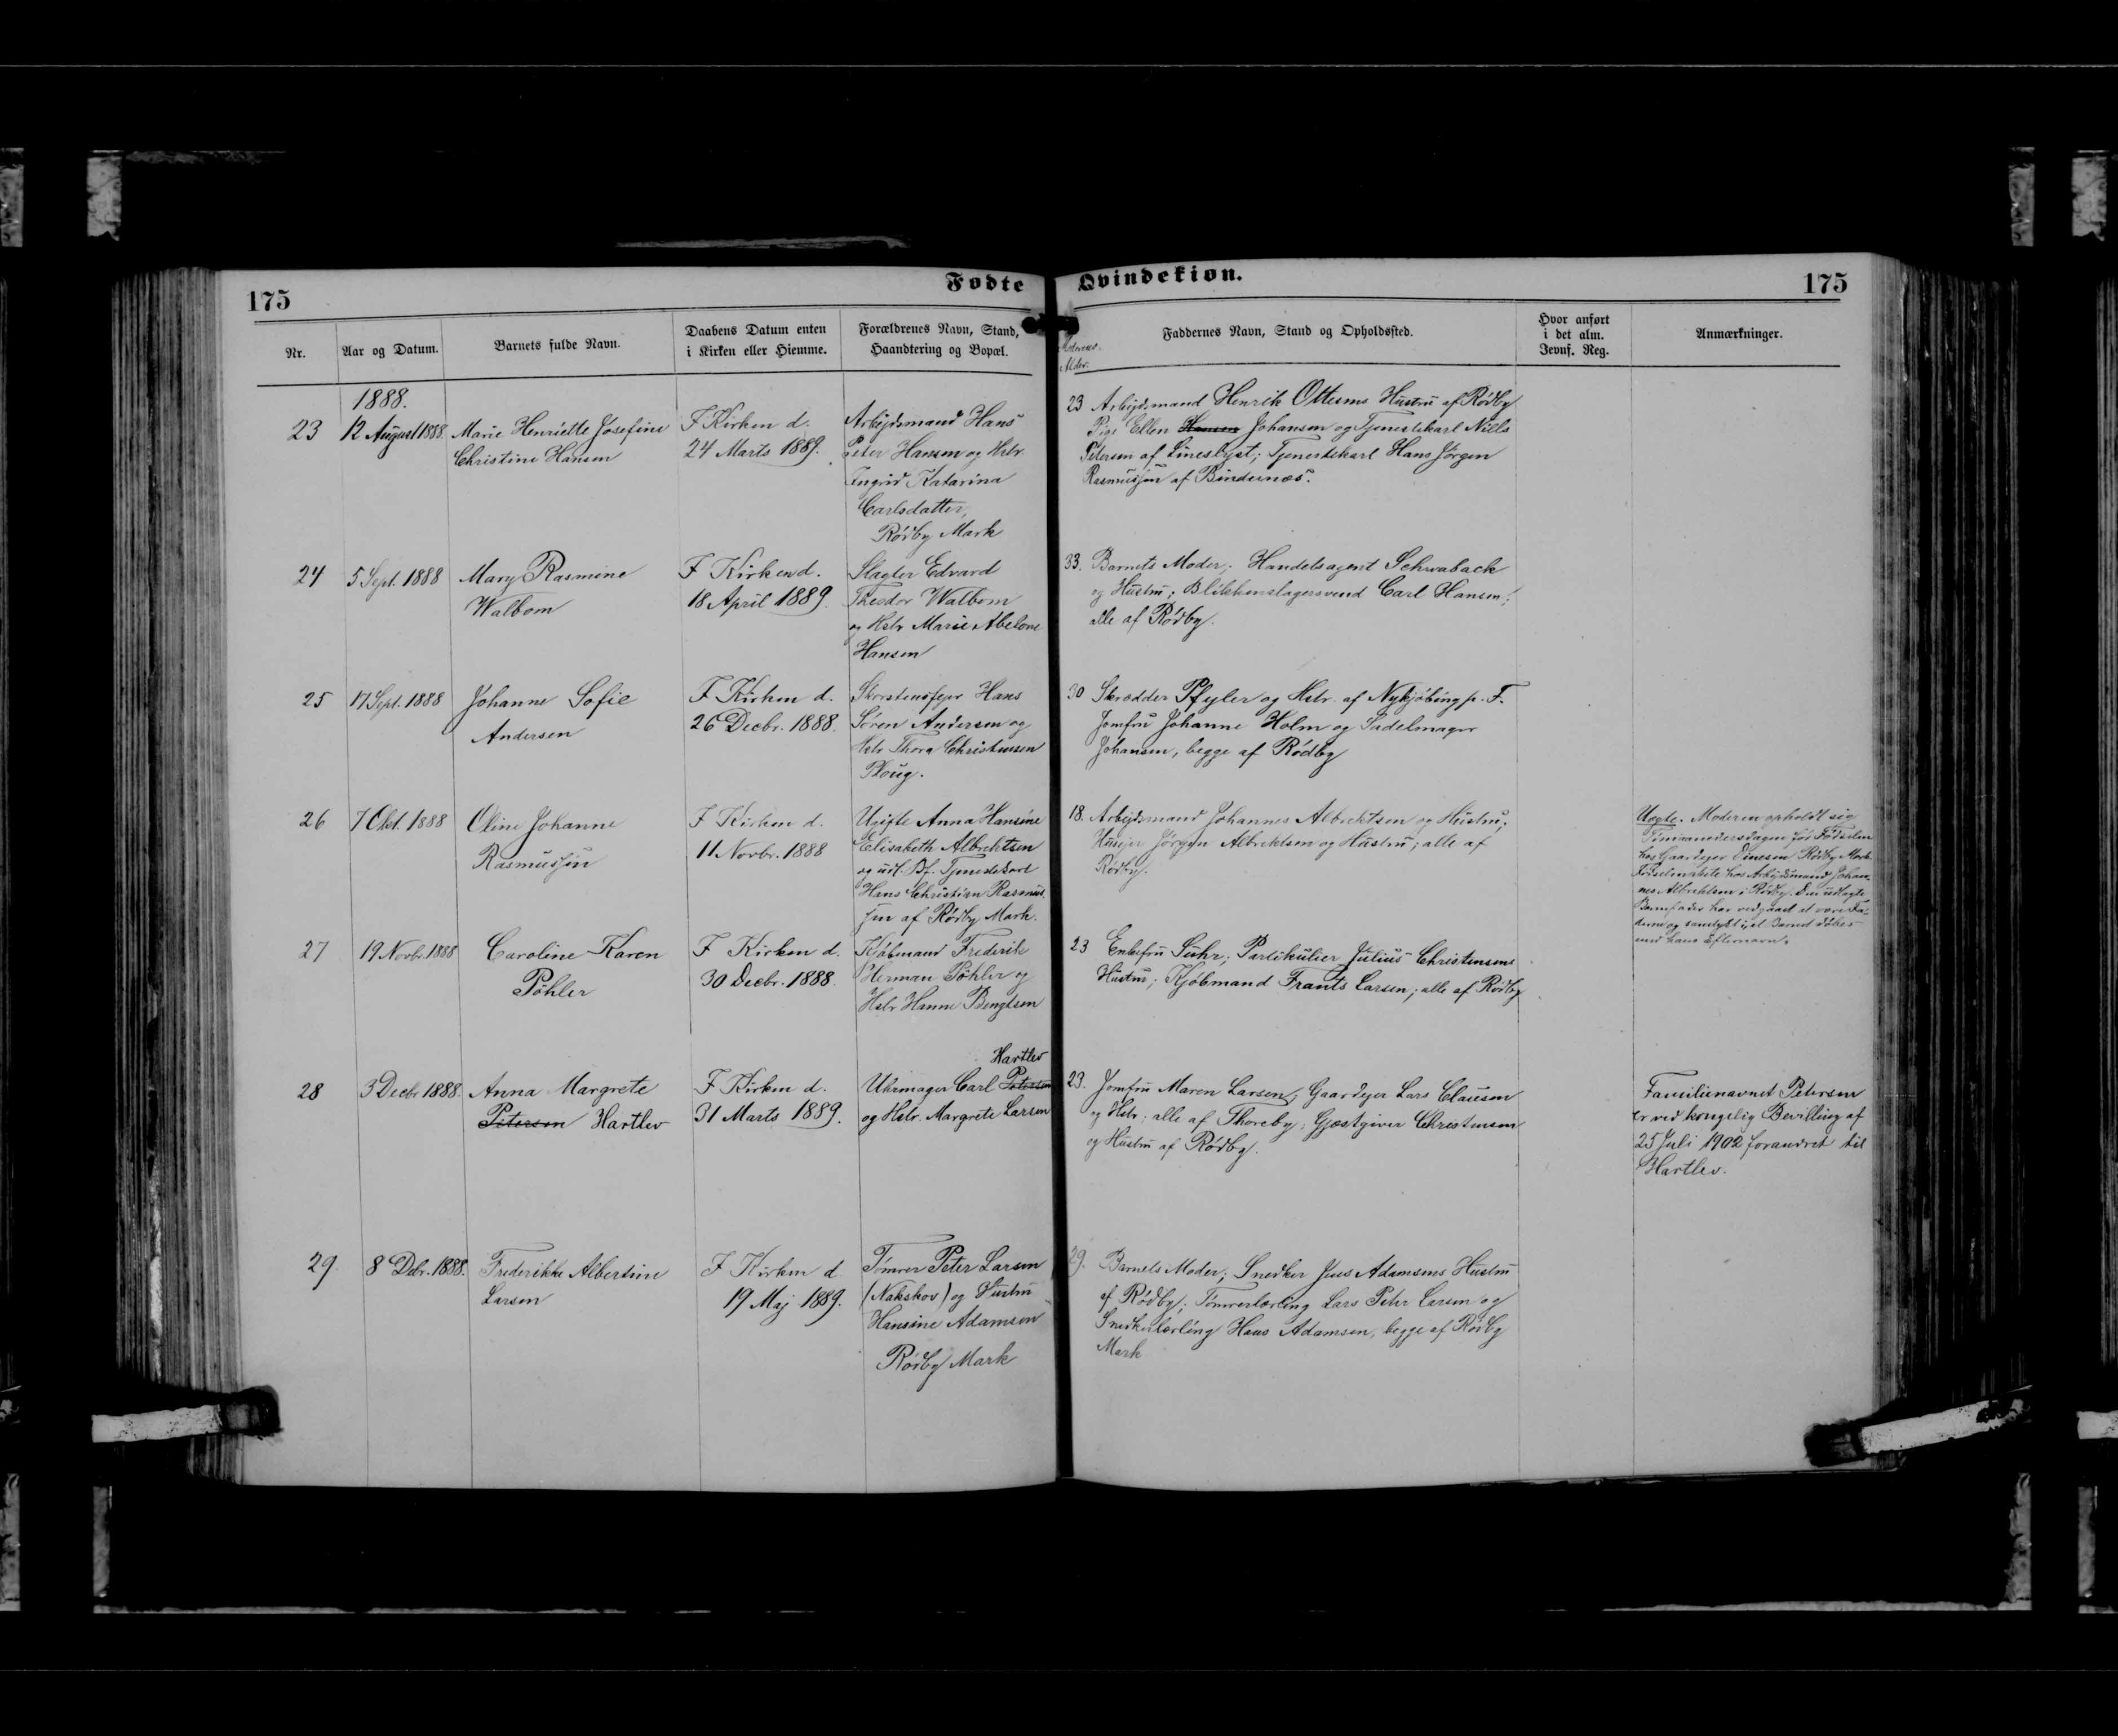 175
Fødte
Qvindekiøn.
175
Nr.
Aar og Datum.
Barnets fulde Navn.
Daabens Datum enten
i Kirken eller Hiemme.
Forældrenes Navn, Stand,
Haandtering og Bopæl.
Moderens
Alder.
Faddernes Navn, Stand og Opholdssted.
Hvor anført
i det alm.
Jevnf. Reg.
Anmærkninger.
1888.
23
12 August 1888.
Marie Henriette Josefine
Christine Hansen
I Kirken d.
24 Marts 1889.
Arbejdsmand Hans
Peter Hansen og Hstr.
Ingrid Katarina
Carlsdatter,
Rødby Mark
23
Arbejdsmand Henrik Ottesens Hustru af Rødby
Pige Ellen Hansen Johansen og Tjenestekarl Niels
Petersen af Lineslyst; Tjenestekarl Hans Jørgen
Rasmussen af Bindernæs.
24
5 Sept. 1888
Mary Rasmine
Walbom
I Kirken d.
18 April 1889.
Slagter Edvard
Theodor Walbom
og Hstr Marie Abelone
Hansen
33.
Barnets Moder; Handelsagent Schwaback
og Hustru; Blikkenslagersvend Carl Hansen;
alle af Rødby.
25
17 Sept. 1888
Johanne Sofie
Andersen
I Kirken d.
26 Decbr. 1888.
Skorstensfejer Hans
Søren Andersen og
Hstr Thora Christensen
Ploug.
30
Skrædder Pfyler og Hstr. af Nykjøbing p. F.
Jomfru Johanne Holm og Sadelmager
Johansen, begge af Rødby
26
7 Okt. 1888
Oline Johanne
Rasmussen
I Kirken d.
11 Novbr. 1888
Ugifte Anna Hansine
Elisabeth Albrektsen
og udl. Bf. Tjenestekarl
Hans Christian Rasmus-
sen af Rødby Mark.
18.
Arbejdsmand Johannes Albrektsen og Hustru;
Husejer Jørgen Albrektsen og Hustru; alle af
Rødby.
Uægte. Moderen opholdt sig
Timaanedersdagen før Fødselen
hos Gaardejer Dinesen Rødby Mark.
Fødselen skete hos Arbejdsmand Johan-
nes Albrektsen i Rødby. Den udlagte
Barnefader har vedgaaet at være Fa-
deren og samtykt i, at Barnet døbes
med hans Efternavn.
27
19 Novbr. 1888
Caroline Karen
Pøhler
I Kirken d.
30 Decbr. 1888.
Kjøbmand Frederik
Herman Pøhler og
Hstr Hanne Bengtsen
23
Enkefru Suhr; Partikulier Julius Christensens
Hustru; Kjøbmand Frants Larsen; alle af Rødby
28
3 Decbr 1888.
Anna Margrete
Petersen Hartlev
I Kirken d.
31 Marts 1889.
Hartlev
Uhrmager Carl Petersen
og Hstr. Margrete Larsen
23.
Jomfru Maren Larsen; Gaardejer Lars Clausen
og Hstr; alle af Thoreby; Gjæstgiver Christensen
og Hustru af Rødby.
Familienavnet Petersen
er ved kongelig Bevilling af
25 Juli 1902 forandret til
Hartlev.
29.
8 Debr. 1888.
Frederikke Albertine
Larsen
I Kirken d.
19 Maj 1889.
Tømrer Peter Larsen
(Nakskov) og Hustru
Hansine Adamsen
Rødby Mark
29.
Barnets Moder; Snedker Jens Adamsens Hustru
af Rødby; Tømrerlærling Lars Peter Larsen og
Snedkerlærling Hans Adamsen, begge af Rødby
Mark